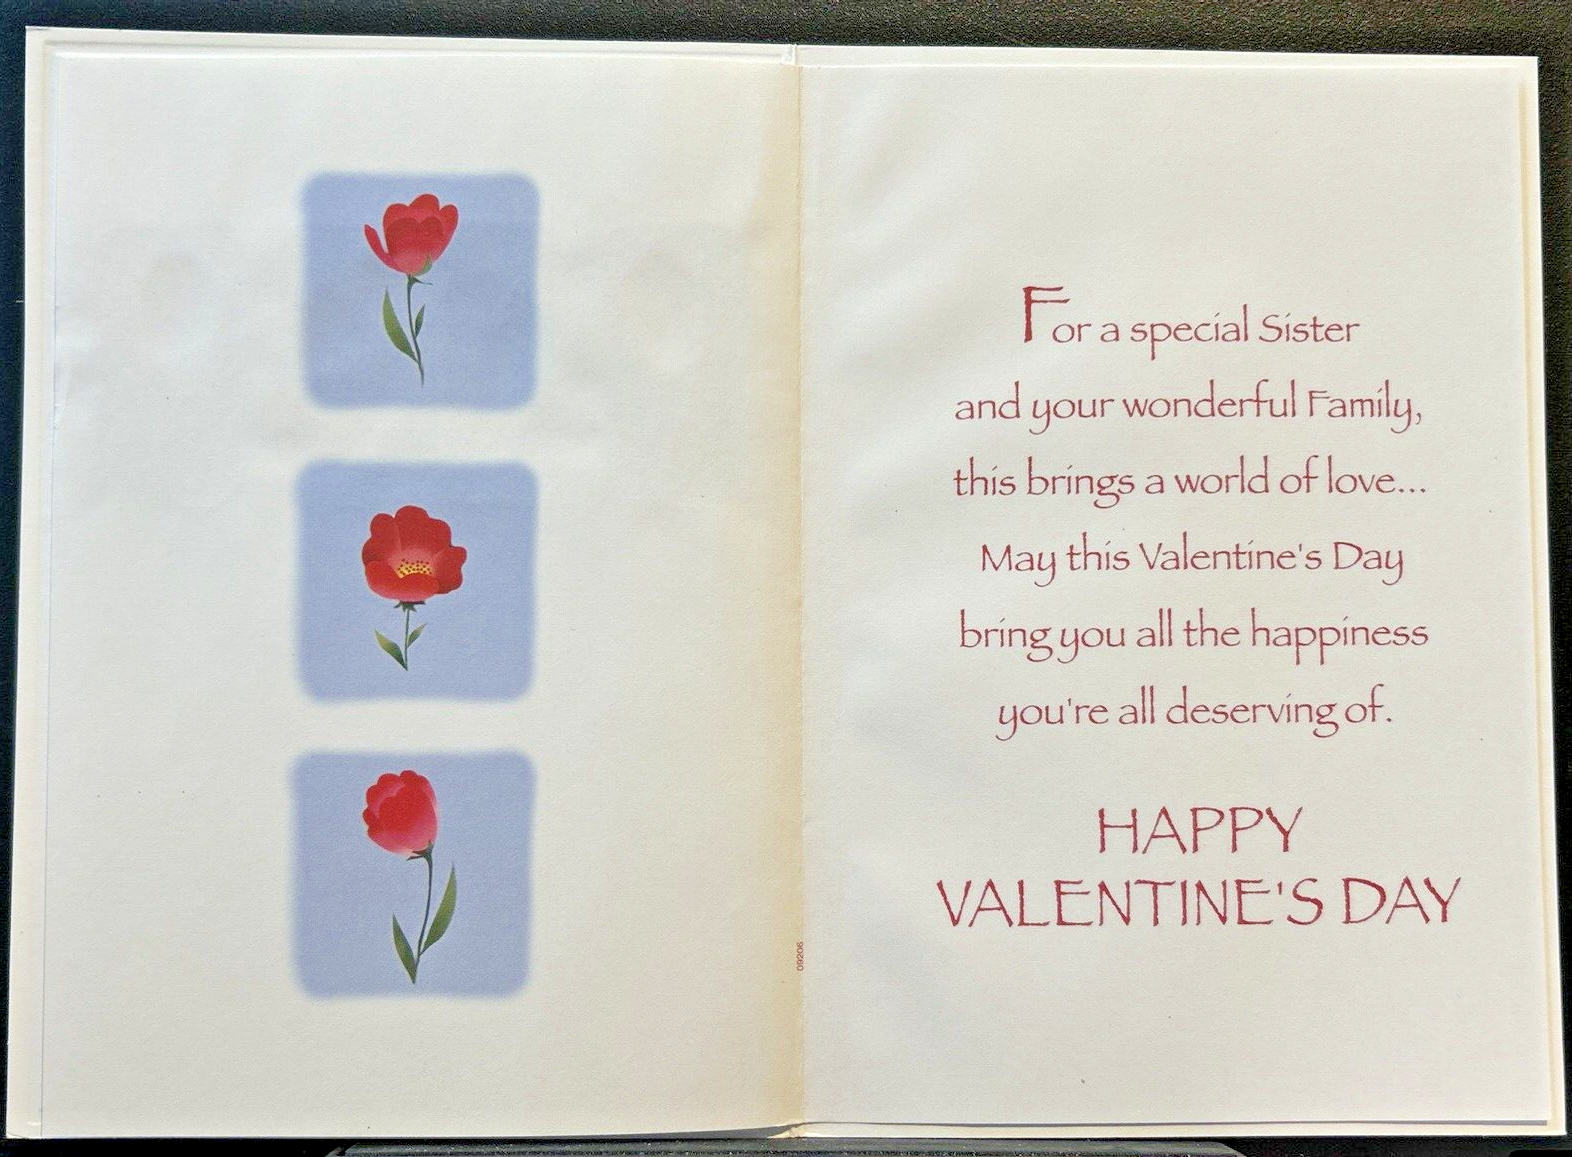 For a special Sister
and your wonderful Family,
this brings a world of love...
May this Valentine's Day
bring you all the happiness
you're all deserving of.
HAPPY
VALENTINE'S DAY
09206